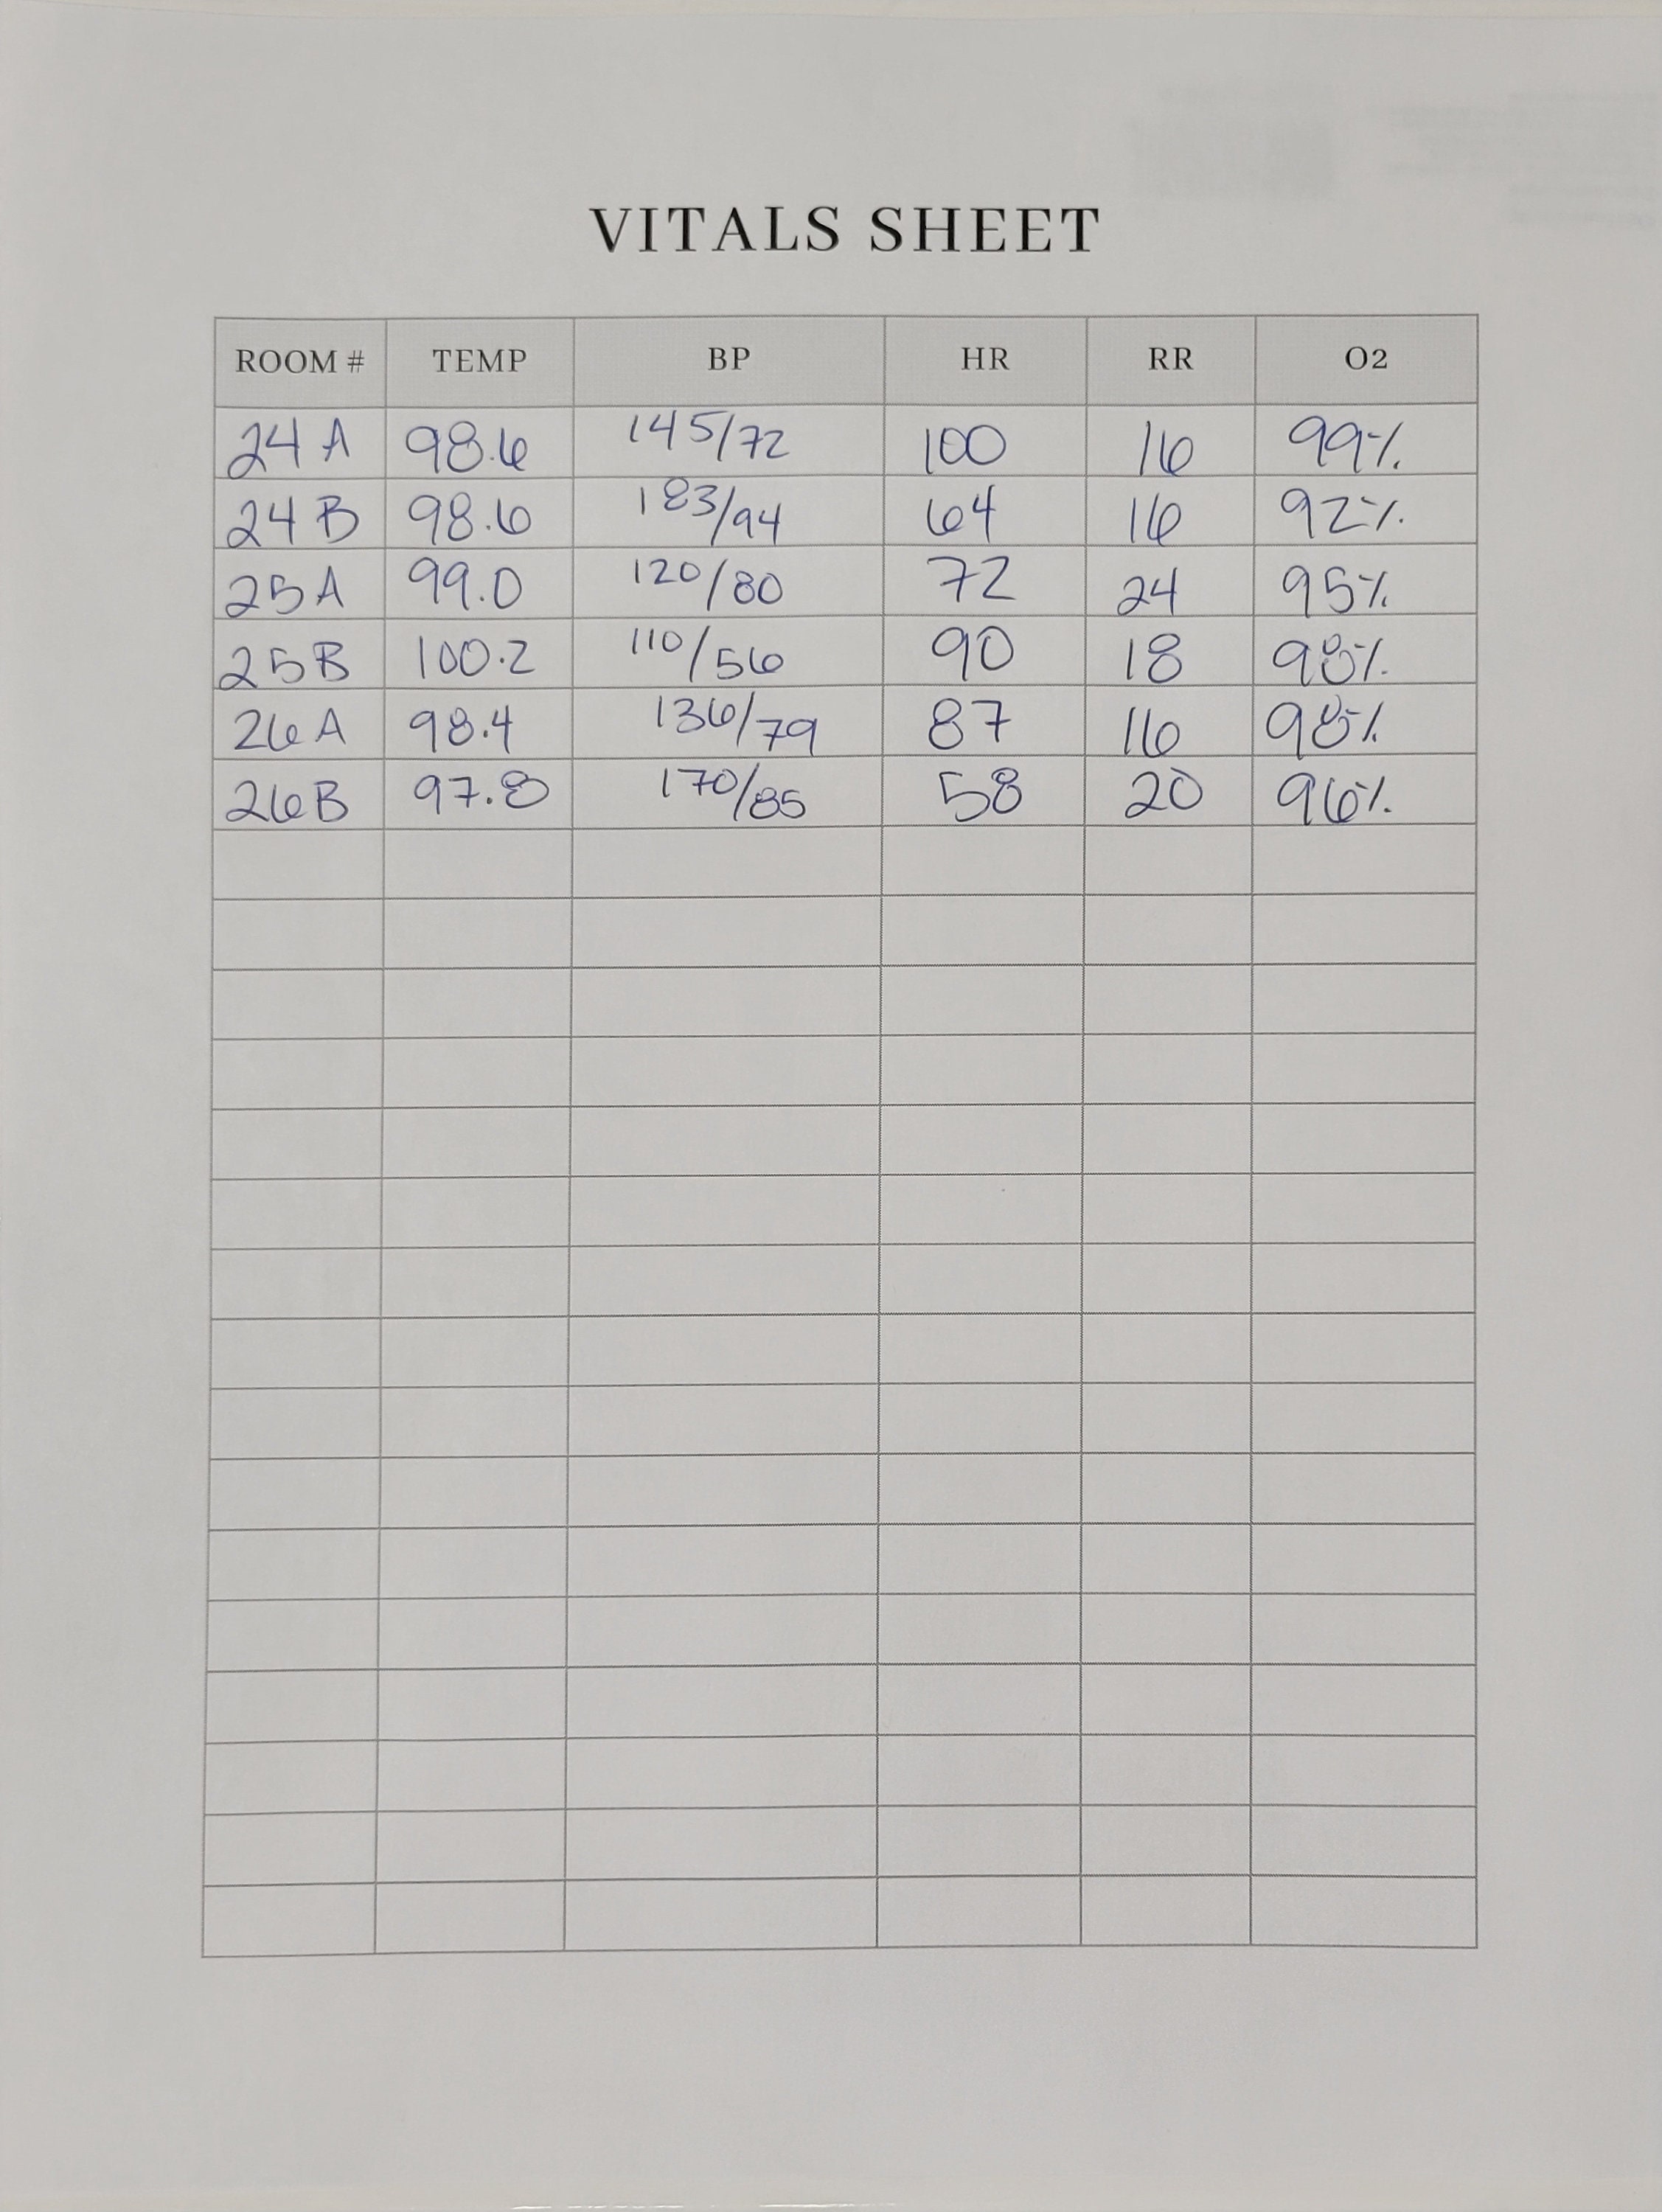 VITALS SHEET
ROOM # TEMP BP HR RR O2
24 A 98.6 145/72 100 16 99%
24 B 98.6 183/94 64 16 92%
25 A 99.0 120/80 72 24 95%
25 B 100.2 110/56 90 18 98%
26 A 98.4 136/79 87 16 98%
26 B 97.8 170/85 58 20 96%